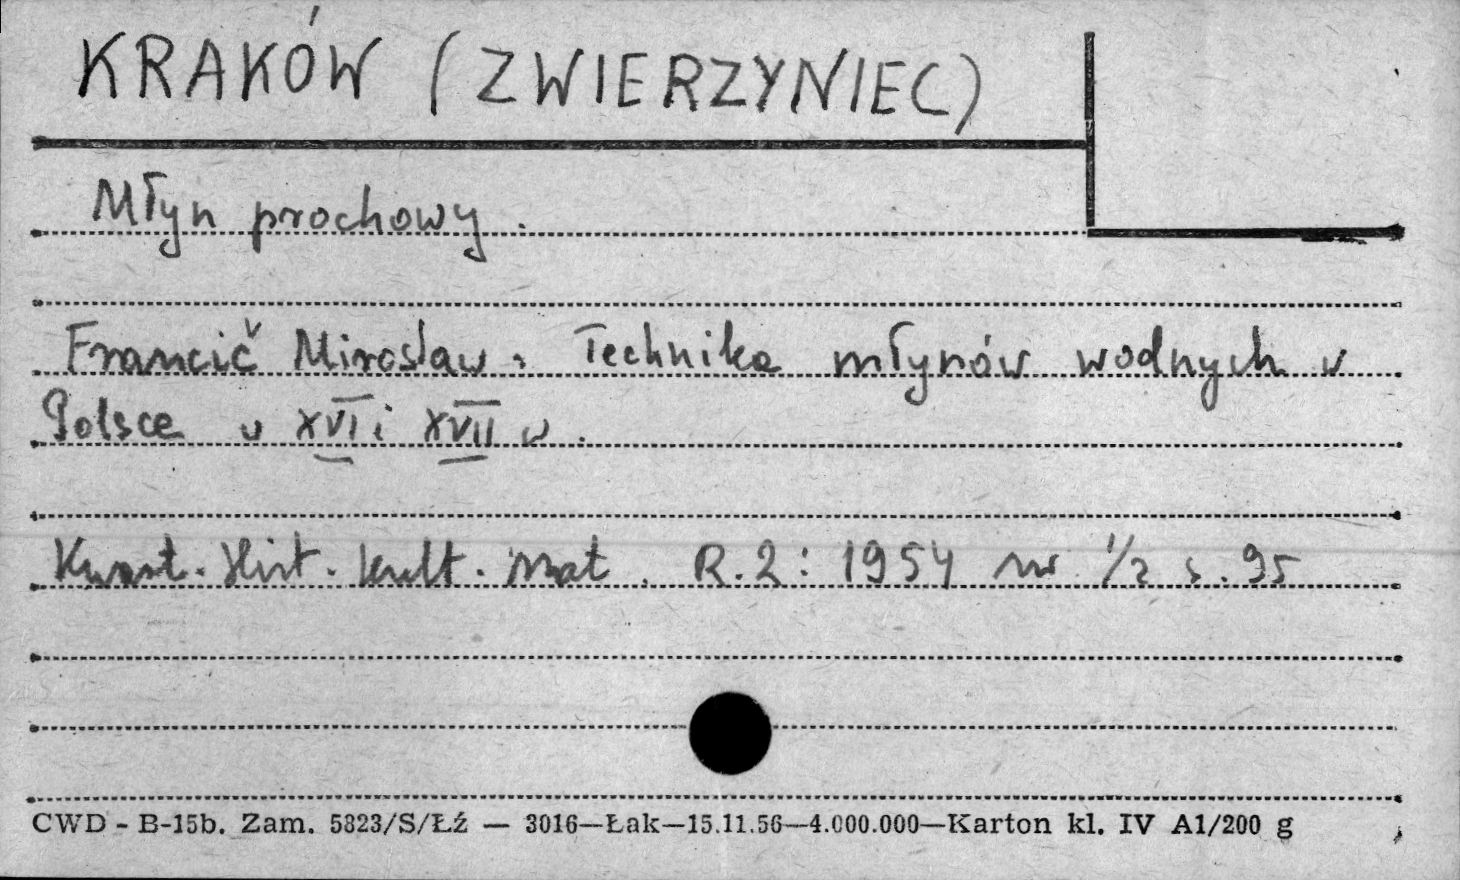 KRAKÓW (ZWIERZYNIEC)
Młyn prochowy.
Francić Mirosław: Technika młynów wodnych w
Polsce w XVI i XVII w.
Kwart. Hist. Kult. Mat. R.2: 1954 nr 1/2 s. 95
CWD - B-15b. Zam. 5823/S/Łź — 3016—Łak—15.11.56—4.000.000—Karton kl. IV A1/200 g